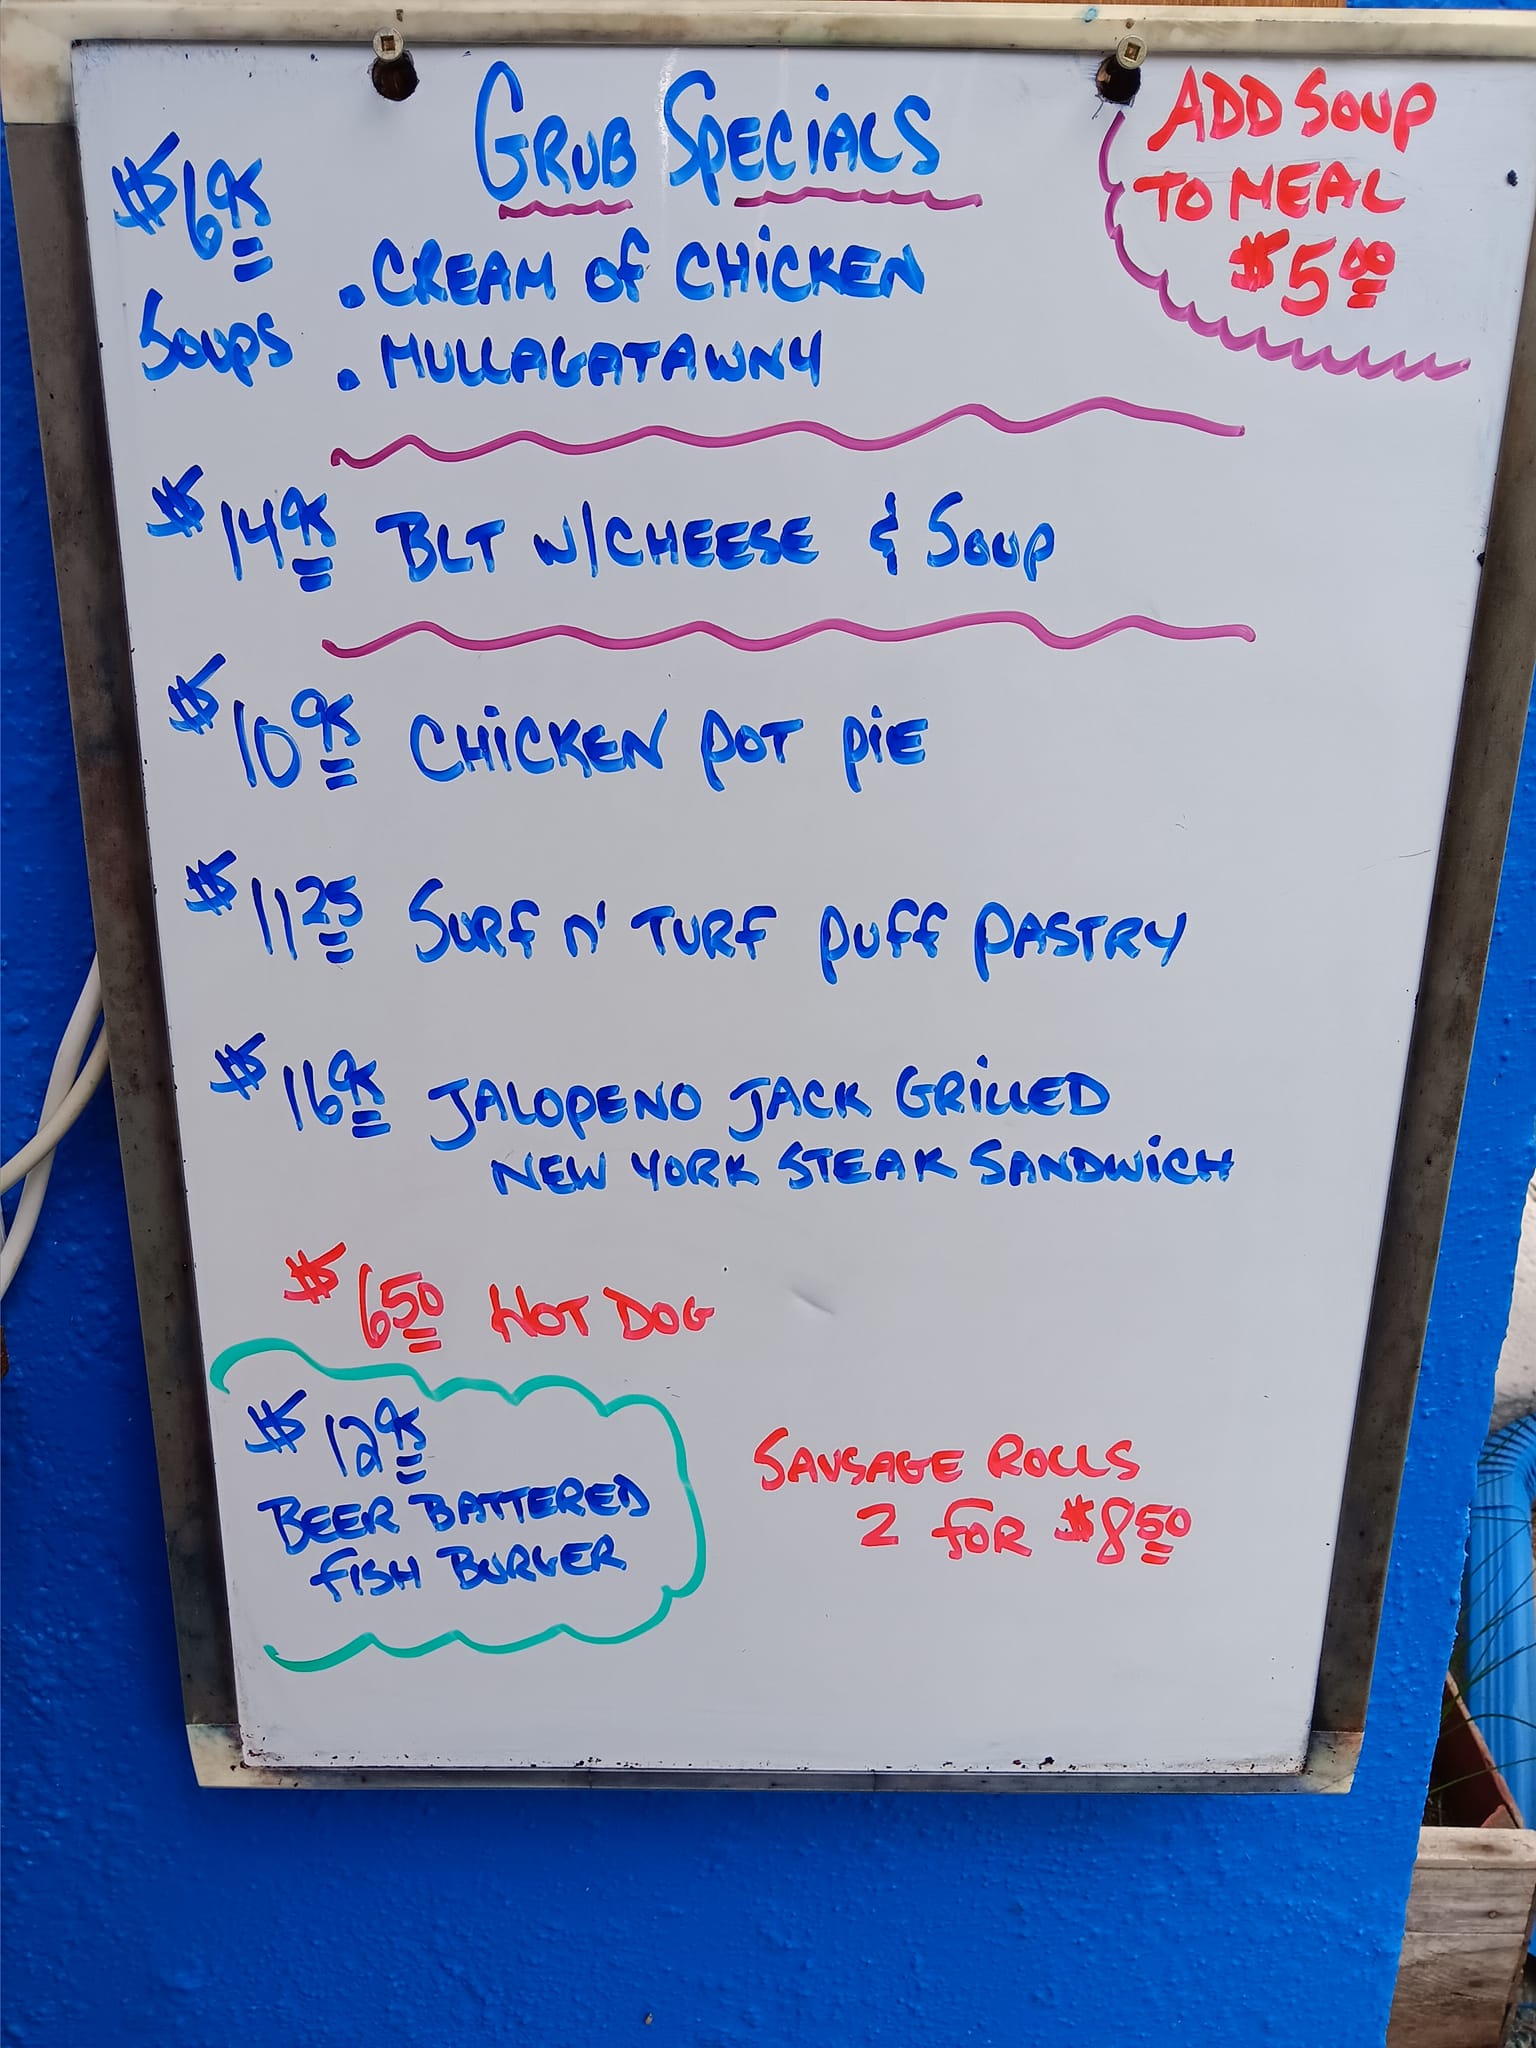 GRUB SPECIALS
ADD SOUP
TO MEAL
$5.00
$6.95
SOUPS
. CREAM OF CHICKEN
. MULLAGATAWNY
$14.95 BLT W/CHEESE & SOUP
$10.95 CHICKEN POT PIE
$11.25 SURF N' TURF PUFF PASTRY
$16.95 JALOPENO JACK GRILLED
NEW YORK STEAK SANDWICH
$6.50 HOT DOG
$12.95
BEER BATTERED
FISH BURGER
SAUSAGE ROLLS
2 FOR $8.50